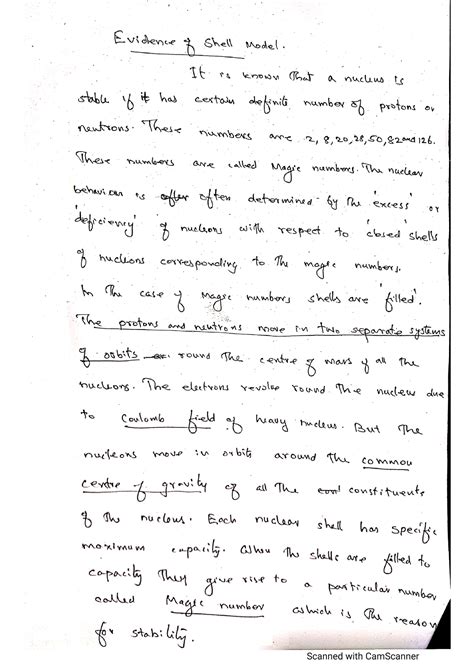 Evidence of Shell Model.
It is known that a nucleus is
stable if it has certain definite number of protons or
neutrons. These numbers are 2, 8, 20, 28, 50, 82 and 126.
These numbers are called Magic numbers. The nuclear
behaviour is often determined by the 'excess' or
'deficiency' of nucleons with respect to 'closed' shells
of nucleons corresponding to the magic numbers.
In the case of Magic numbers shells are 'filled'.
The protons and neutrons move in two separate systems
of orbits round the centre of mass of all the
nucleons. The electrons revolve round the nucleus due
to Coulomb field of heavy nucleus. But the
nucleons move in orbits around the common
centre of gravity of all the constituents
of the nucleus. Each nuclear shell has specific
maximum capacity. When the shells are filled to
capacity they give rise to a particular number
called Magic number which is the reason
for stability.
Scanned with CamScanner